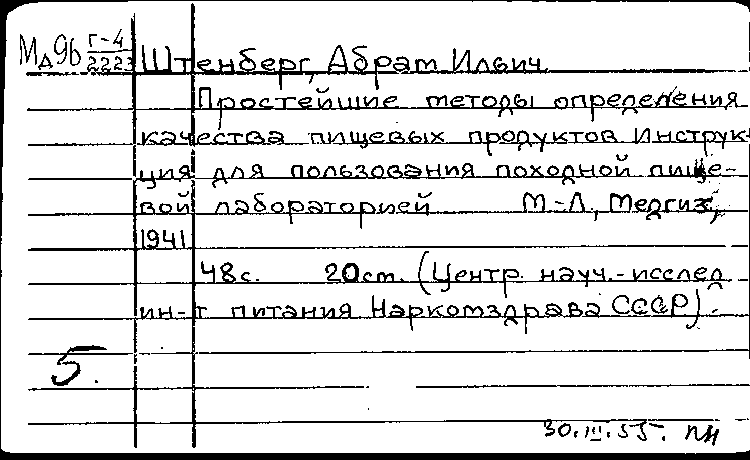 Мд96 Г-4/2223 Штенберг, Абрам Ильич
Простейшие методы определения
качества пищевых продуктов Инструк-
ция для пользования походной пище-
вой лабораторией М.-Л., Медгиз,
1941
48с. 20см. (Центр. науч.-исслед
ин-т питания Наркомздрава СССР).
5.
30.III.55. пн